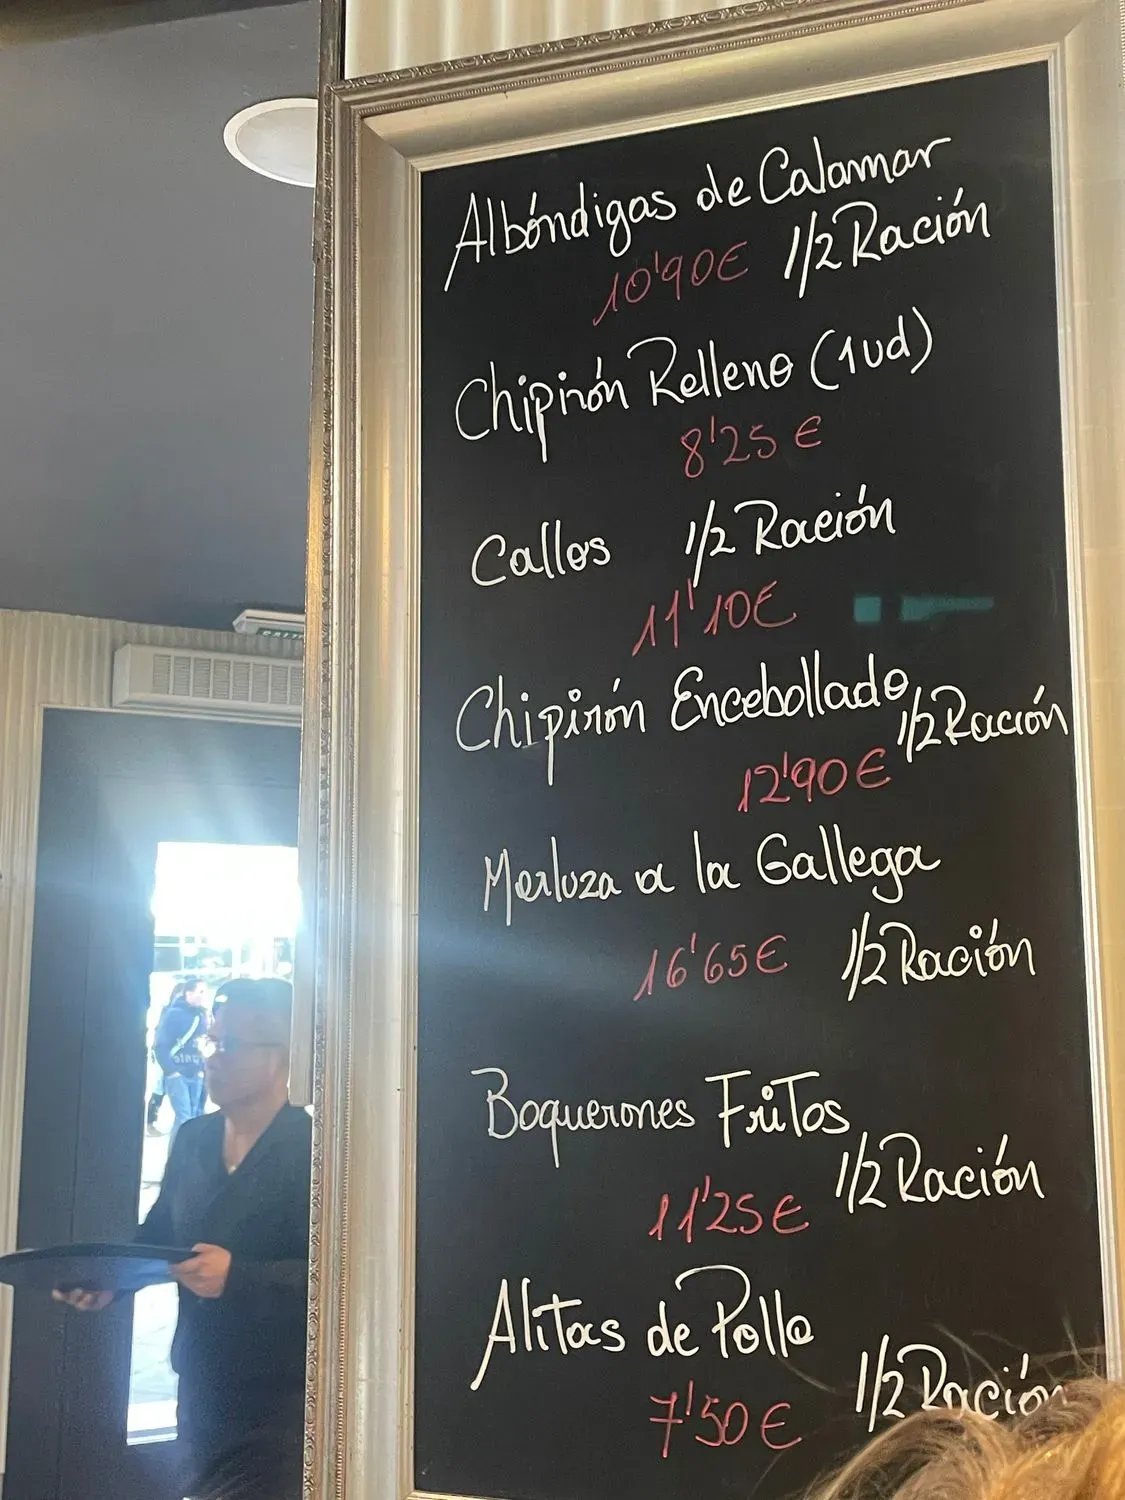 Albóndigas de Calamar
10'90€ 1/2 Ración
Chipirón Relleno (1ud)
8'25€
Callos 1/2 Ración
11'10€
Chipirón Encebollado
12'90€ 1/2 Ración
Merluza a la Gallega
16'65€ 1/2 Ración
Boquerones Fritos
11'25€ 1/2 Ración
Alitas de Pollo
7'50€ 1/2 Ración